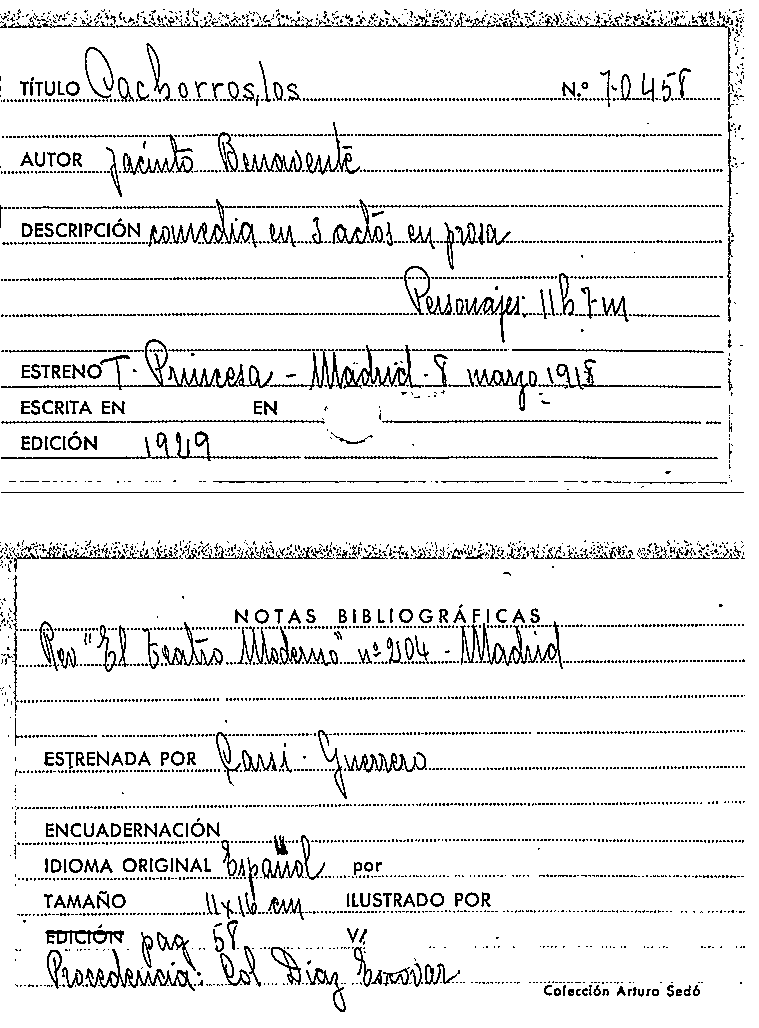 TÍTULO Cachorros, los N.º 70458
AUTOR Jacinto Benavente
DESCRIPCIÓN comedia en 3 actos en prosa
Personajes: 11h 7m
ESTRENO T. Princesa - Madrid - 8 marzo 1918
ESCRITA EN EN
EDICIÓN 1929
NOTAS BIBLIOGRÁFICAS
Rev "El Teatro Moderno" nº 204 - Madrid
ESTRENADA POR Carsi - Guerrero
ENCUADERNACIÓN
IDIOMA ORIGINAL Español por
TAMAÑO 11x16 cm ILUSTRADO POR
EDICIÓN pag 58 V.
Procedencia: Col Diaz Escovar
Colección Arturo Sedó